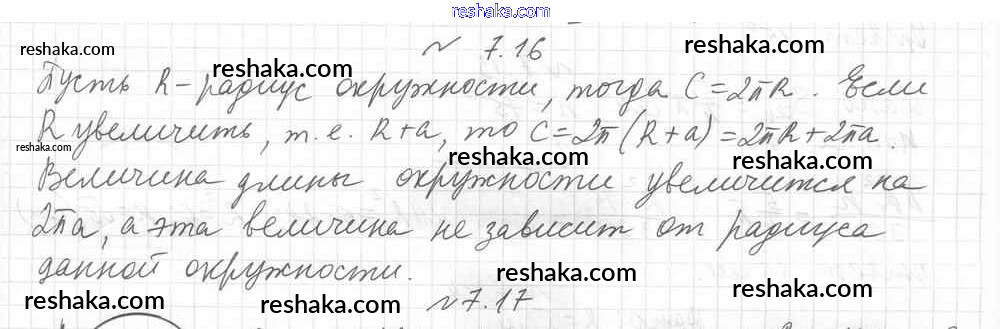 reshaka.com
№ 7.16
reshaka.com
reshaka.com
reshaka.com
Пусть R – радиус окружности, тогда C = 2πR. Если
reshaka.com
reshaka.com
R увеличить, т. е. R + a, то C = 2π (R + a) = 2πR + 2πa.
reshaka.com
reshaka.com
reshaka.com
Величина длины окружности увеличится на
2πa, а эта величина не зависит от радиуса
reshaka.com
reshaka.com
reshaka.com
данной окружности.
reshaka.com
reshaka.com
reshaka.com
reshaka.com
№ 7.17